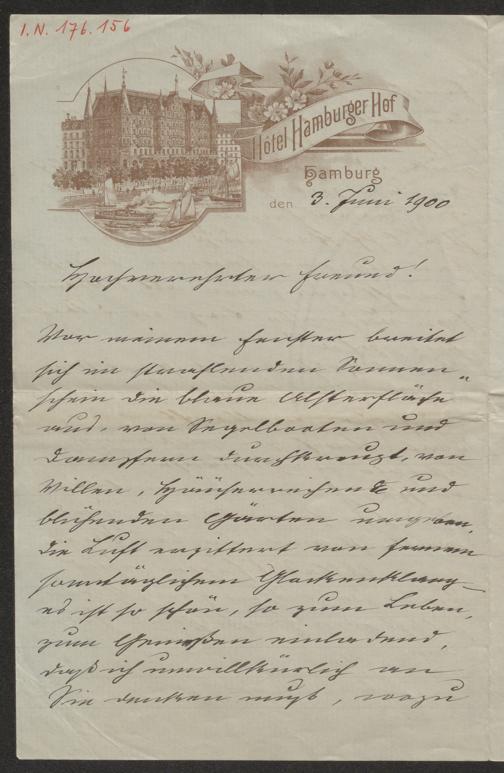 I.N. 176.156
Hôtel Hamburger Hof
Hamburg
den 3. Juni 1900
Hochverehrter Freund!
Vor meinem Fenster breitet
sich im strahlenden Sonnen-
schein die blaue Alsterfläche
aus, von Segelbooten und
Dampfern durchkreuzt, von
Villen, Häuserreihen & und
blühenden Gärten umgeben,
die Luft erzittert von fernem
sonntäglichem Glockenklang –
es ist so schön, so zum Leben,
zum Genießen einladend,
daß ich unwillkürlich an
Sie denken muß, wozu